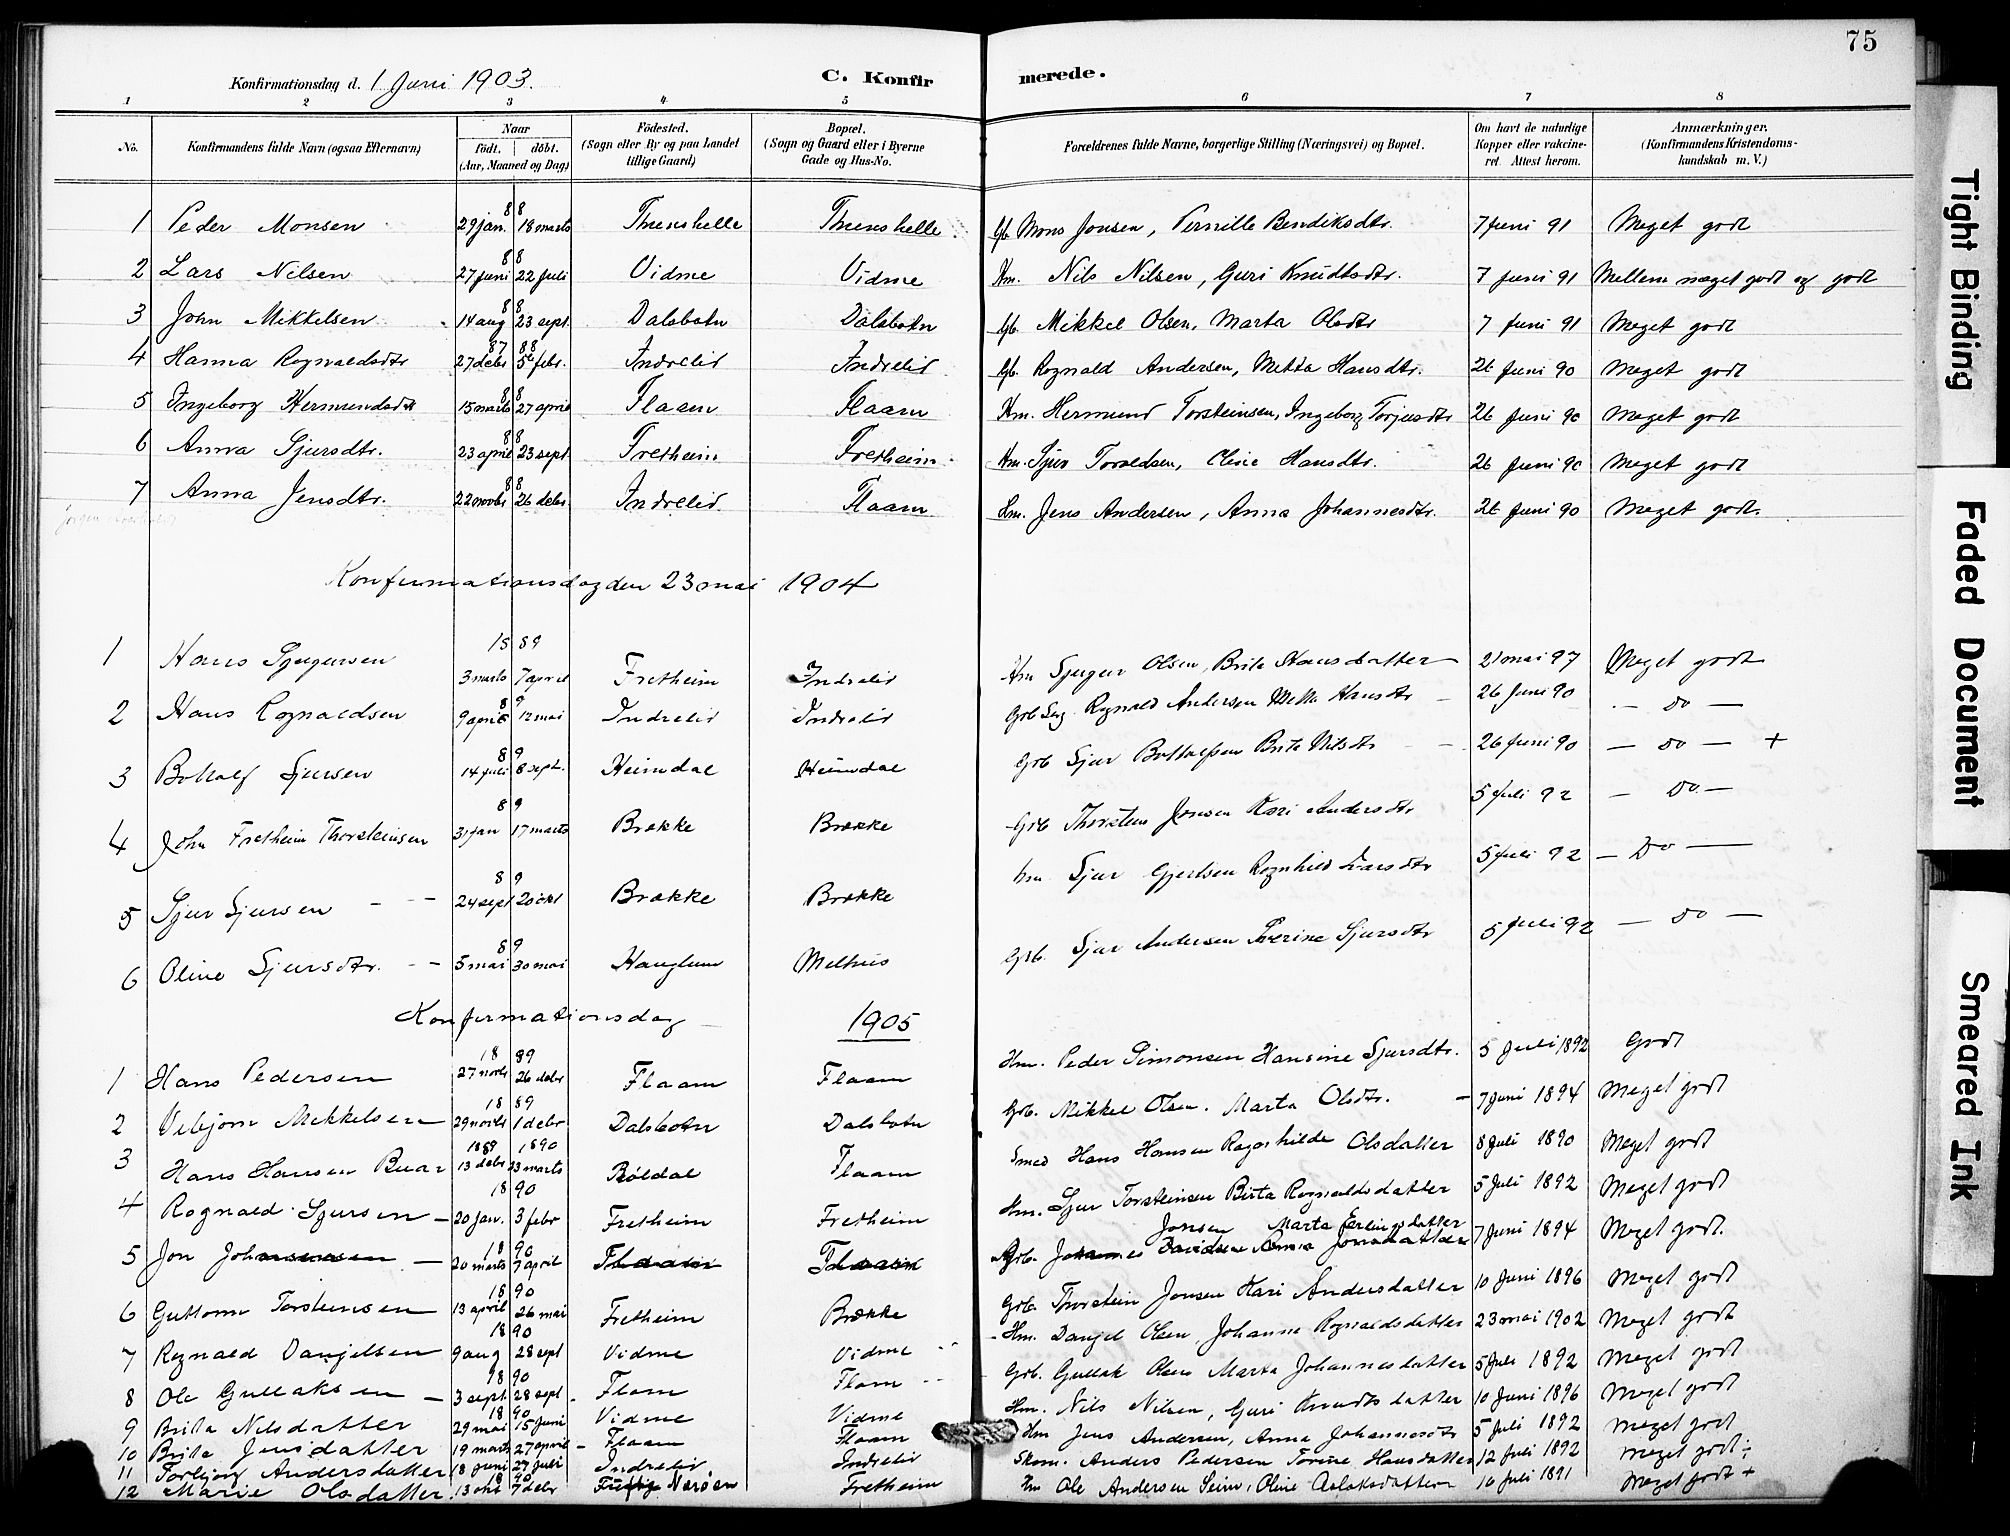 75
Konfirmationsdag d. 1 Juni 1903. C. Konfirmerede.
1 2 3 4 5 6 7 8
No. Konfirmandens fulde Navn (ogsaa Efternavn) Naar født. døbt. (Aar, Maaned og Dag) Fødested. (Sogn eller By og paa Landet tillige Gaard) Bopæl. (Sogn og Gaard eller i Byerne Gade og Hus-No. Forældrenes fulde Navne, borgerlige Stilling (Næringsvei) og Bopæl. Om havt de naturlige Kopper eller vakcineret. Attest herom. Anmærkninger. (Konfirmandens Kristendomskundskab m. V.)
1 Peder Monsen 29 jan. 88 18 marts Thenshelle Thenshelle Gb. Mons Jonsen, Pernille Bendiksdtr. 7 Juni 91 Meget godt
2 Lars Nilsen 88 27 juni 22 juli Vidme Vidme Hm. Nils Nilsen, Guri Knudtsdtr. 7 juni 91 Mellem meget godt og godt
3 John Mikkelsen 88 14 aug 23 sept. Dalsbotn Dalsbotn Gb. Mikkel Olsen, Marta Olsdtr 7 juni 91 Meget godt
4 Hanna Rognaldsdtr 87 88 27 debr 5te febr. Indrelid Indrelid Gb. Rognald Andersen, Metta Hansdtr. 26 juni 90 Meget godt
5 Ingeborg Hermundsdtr 88 15 marts 27 april Flaam Flaam Hm. Hermund Torsteinsen, Ingeborg Torjusdtr 26 juni 90 Meget godt
6 Anna Sjursdtr. 88 23 april 23 sept. Fretheim Fretheim Hm. Sjur Toraldsen, Oline Hansdtr. 26 juni 90 Meget godt
7 Anna Jensdtr. 88 22 novbr 26 debr. Indrelid Flaam Hm. Jens Andersen, Anna Johannesdtr. 26 juni 90 Meget godt.
Konfirmationsdag den 23 mai 1904
1 Hans Sjugursen 1889 3 marts 7 april Fretheim Indrelid Hm Sjugur Olsen, Brita Hansdatter 21 mai 97 Meget godt
2 Hans Rognaldsen 89 9 april 12 mai Indrelid Indrelid Grb Rognald Andersen Metta Hansdtr 26 juni 90 — Do —
3 Bottolf Sjursen 89 14 juli 8 sept. Heimdal Heimdal Grb Sjur Bottolfsen Brita Nilsdtr 26 juni 90 — Do — +
4 John Fretheim Thorsteinsen 89 31 jan 17 marts Brække Brække Grb Thorstein Jonsen Kari Andersdtr 5 juli 92 — Do —
5 Sjur Sjursen 89 24 sept 20 okt Brække Brække hm Sjur Gjertsen Rognhild Larsdtr 5 juli 92 — Do —
6 Oline Sjursdtr. 89 5 mai 30 mai Haugtun Melhus Grb. Sjur Andersen Severine Sjursdtr 5 juli 92 — Do —
Konfirmationsdag 1905
1 Hans Pedersen 1889 27 novbr 26 debr Flaam Flaam Hm. Peder Simonsen Hansine Sjursdtr. 5 Juli 1892 Godt
2 Vebjørn Mikkelsen 1889 29 novbr 1 debr Dalsbotn Dalsbotn Grb. Mikkel Olsen. Marta Olsdtr. 7 juni 1894 Meget godt
3 Hans Hansen Buar 1889 1890 13 debr 23 marts Røldal Flaam Smed Hans Hansen Ragnhilde Olsdatter 8 Juli 1890 Meget godt
4 Rognald Sjursen 1890 20 jan. 3 febr Fretheim Fretheim Hm. Sjur Torsteinsen Brita Rognaldsdatter 5 Juli 1892 Meget godt
Jonsen Marta Erlingsdatter
5 Jon Johannesen 1890 20 marts 7 april Flaam Flaam Grb. Johannes Davidsen Anna Jonsdatter 7 juni 1894 Meget godt.
6 Guttorm Torsteinsen 1890 13 april 26 mai Fretheim Brække Grb. Thorstein Jonsen Kari Andersdatter 10 Juni 1896 Meget godt
7 Rognald Danjelsen 1890 9 aug 28 sept Vidme Vidme Hm. Danjel Olsen, Johanna Rognaldsdatter 23 mai 1902 Meget godt
8 Ole Gullaksen 1890 3 sept. 28 sept Flam Flam Grb. Gullak Olsen Marta Johannesdatter 5 juli 1892 Meget godt
9 Brita Nilsdatter 1890 29 mai 15 juni Vidme Vidme Hm. Nils Nilsen, Guri Knudtsdatter 10 Juni 1896 Meget godt
10 Brita Jensdatter 19 marts 27 april Flaam Flaam Hm Jens Andersen, Anna Johannesdtr 5 Juli 1892 Meget godt
11 Torbjørg Andersdatter 18 juni 27 juli Indrelid Indrelid Skom. Anders Pedersen Torine Hansdatter 12 Juli 1892 Meget godt ÷
12 Marie Olsdatter 1890 13 okt 7 debr Nærøen Fretheim Hm Ole Andersen Seim, Oline Aslaksdatter 10 Juli 1891 Meget godt +
Tight Binding
Faded Document
Smeared Ink